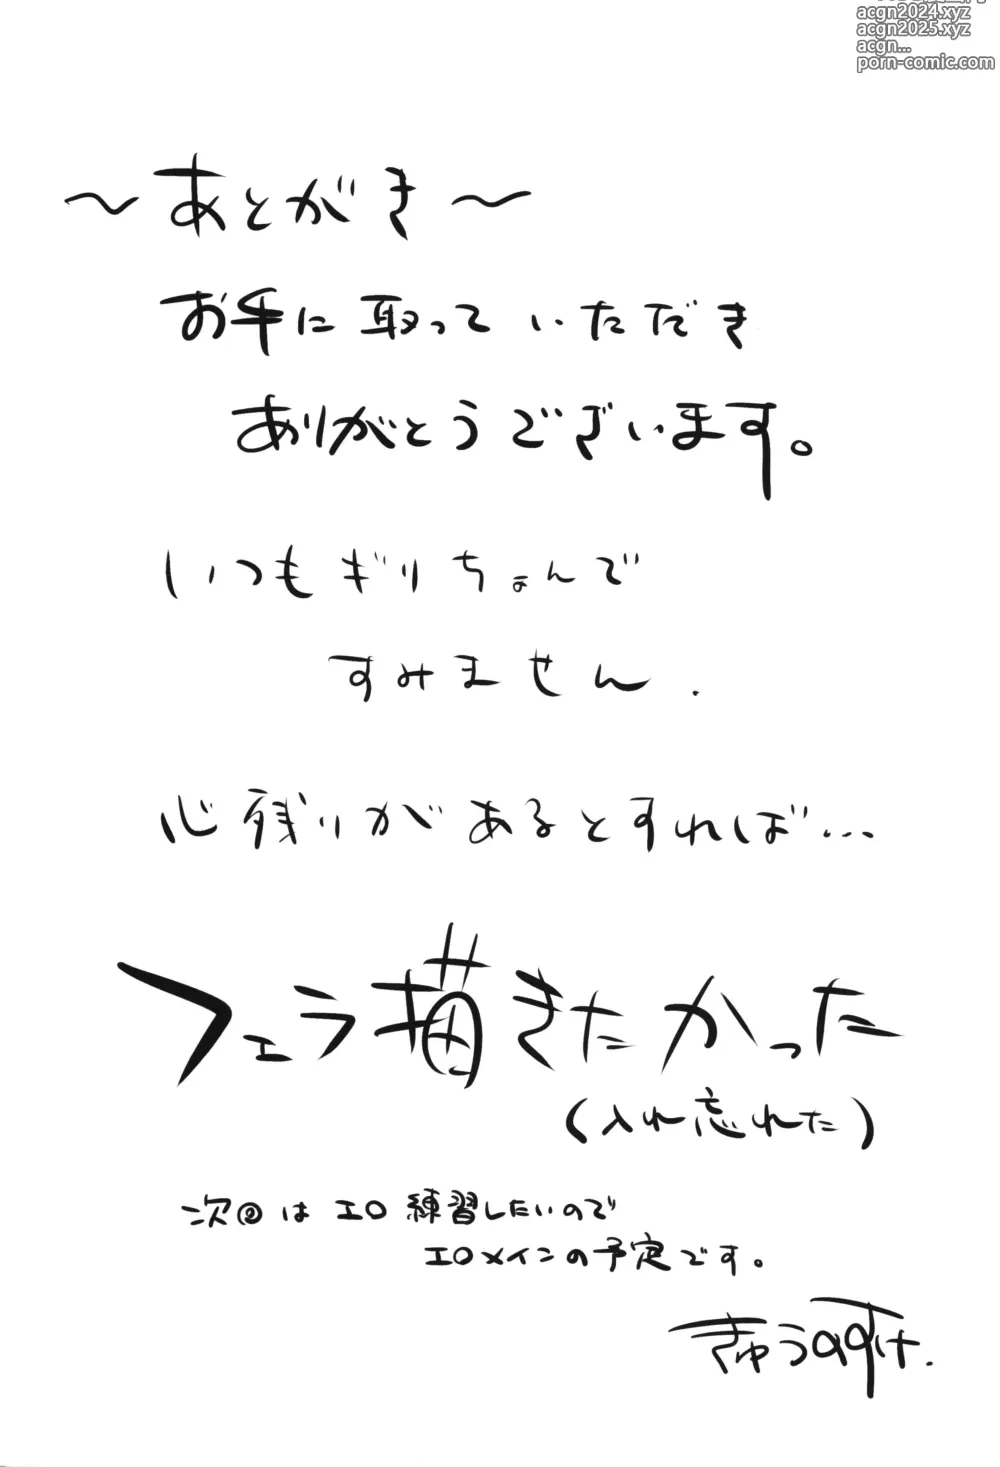 acgn2024.xyz
acgn2025.xyz
acgn...
porn-comic.com
～あとがき～
お手に取っていただき
ありがとうございます。
いつもギリちょんで
すみません.
心残りがあるとすれば…
フェラ描きたかった
(入れ忘れた)
次回はエロ練習したいので
エロメインの予定です。